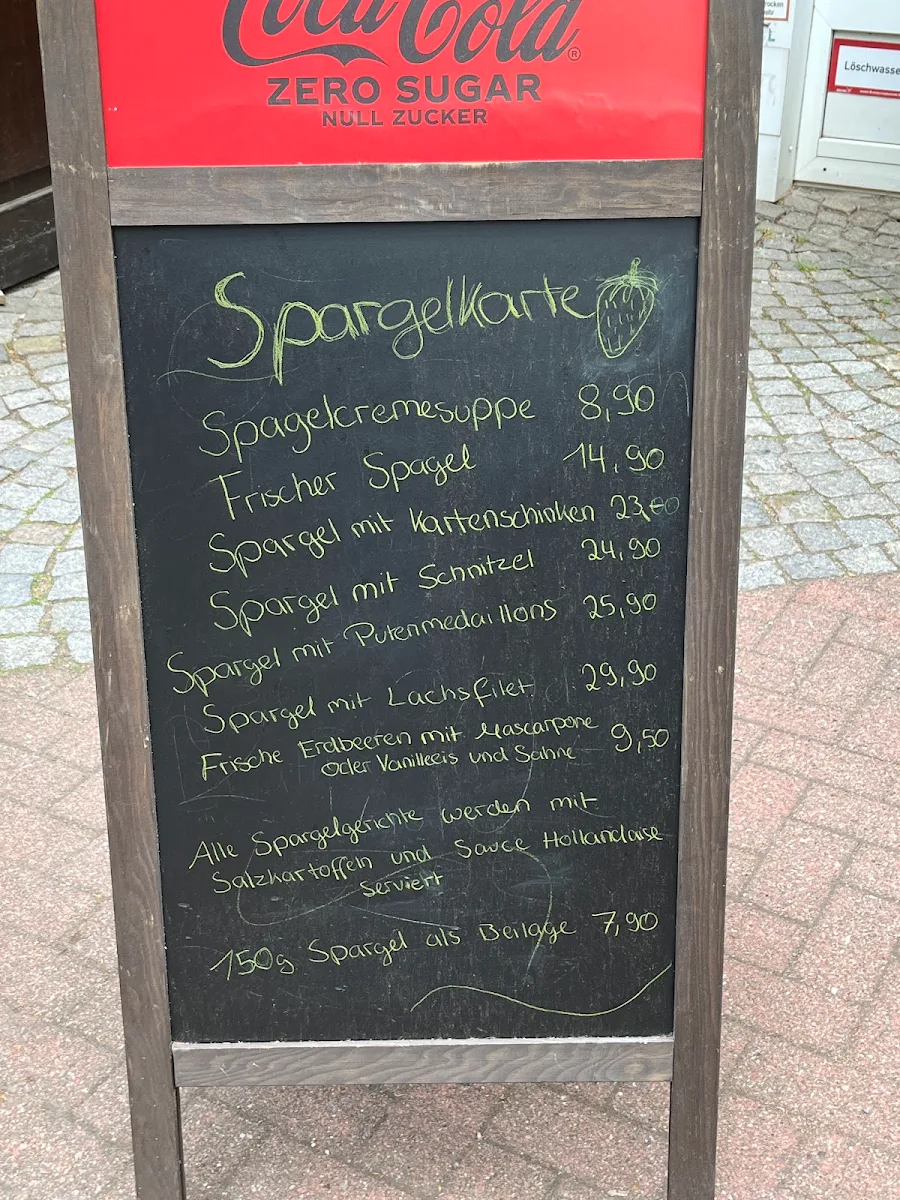 Coca-Cola®
ZERO SUGAR
NULL ZUCKER
Löschwasse
Spargelkarte
Spagelcremesuppe 8,90
Frischer Spagel 14,90
Spargel mit Kartenschinken
Spargel mit Schnitzel 24,90
Spargel mit Putenmedaillons 25,90
Spargel mit Lachsfilet 29,90
Frische Erdbeeren mit Mascarpone 9,50
oder Vanilleeis und Sahne
Alle Spargelgerichte werden mit
Salzkartoffeln und Sauce Hollandaise
serviert
150g Spargel als Beilage 7,90